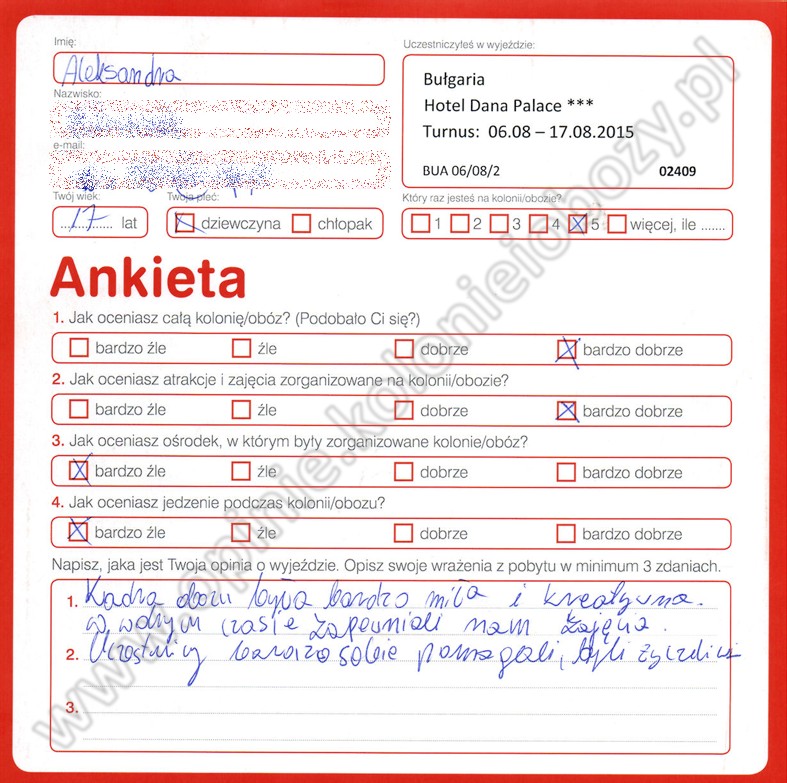 Imię:
Aleksandra
Nazwisko:
e-mail:
Twój wiek:
17 lat
Twoja płeć:
dziewczyna chłopak
Uczestniczyłeś w wyjeździe:
Bułgaria
Hotel Dana Palace ***
Turnus: 06.08 – 17.08.2015
BUA 06/08/2 02409
Który raz jesteś na kolonii/obozie?
1 2 3 4 5 więcej, ile .......
Ankieta
1. Jak oceniasz całą kolonię/obóz? (Podobało Ci się?)
bardzo źle źle dobrze bardzo dobrze
2. Jak oceniasz atrakcje i zajęcia zorganizowane na kolonii/obozie?
bardzo źle źle dobrze bardzo dobrze
3. Jak oceniasz ośrodek, w którym były zorganizowane kolonie/obóz?
bardzo źle źle dobrze bardzo dobrze
4. Jak oceniasz jedzenie podczas kolonii/obozu?
bardzo źle źle dobrze bardzo dobrze
Napisz, jaka jest Twoja opinia o wyjeździe. Opisz swoje wrażenia z pobytu w minimum 3 zdaniach.
1. Kadra obozu była bardzo miła i kreatywna.
w wolnym czasie zapewniali nam zajęcia.
2. Uczestnicy bardzo sobie pomagali, byli życzliwi
3.
www.opinie.kolonieiobozy.pl